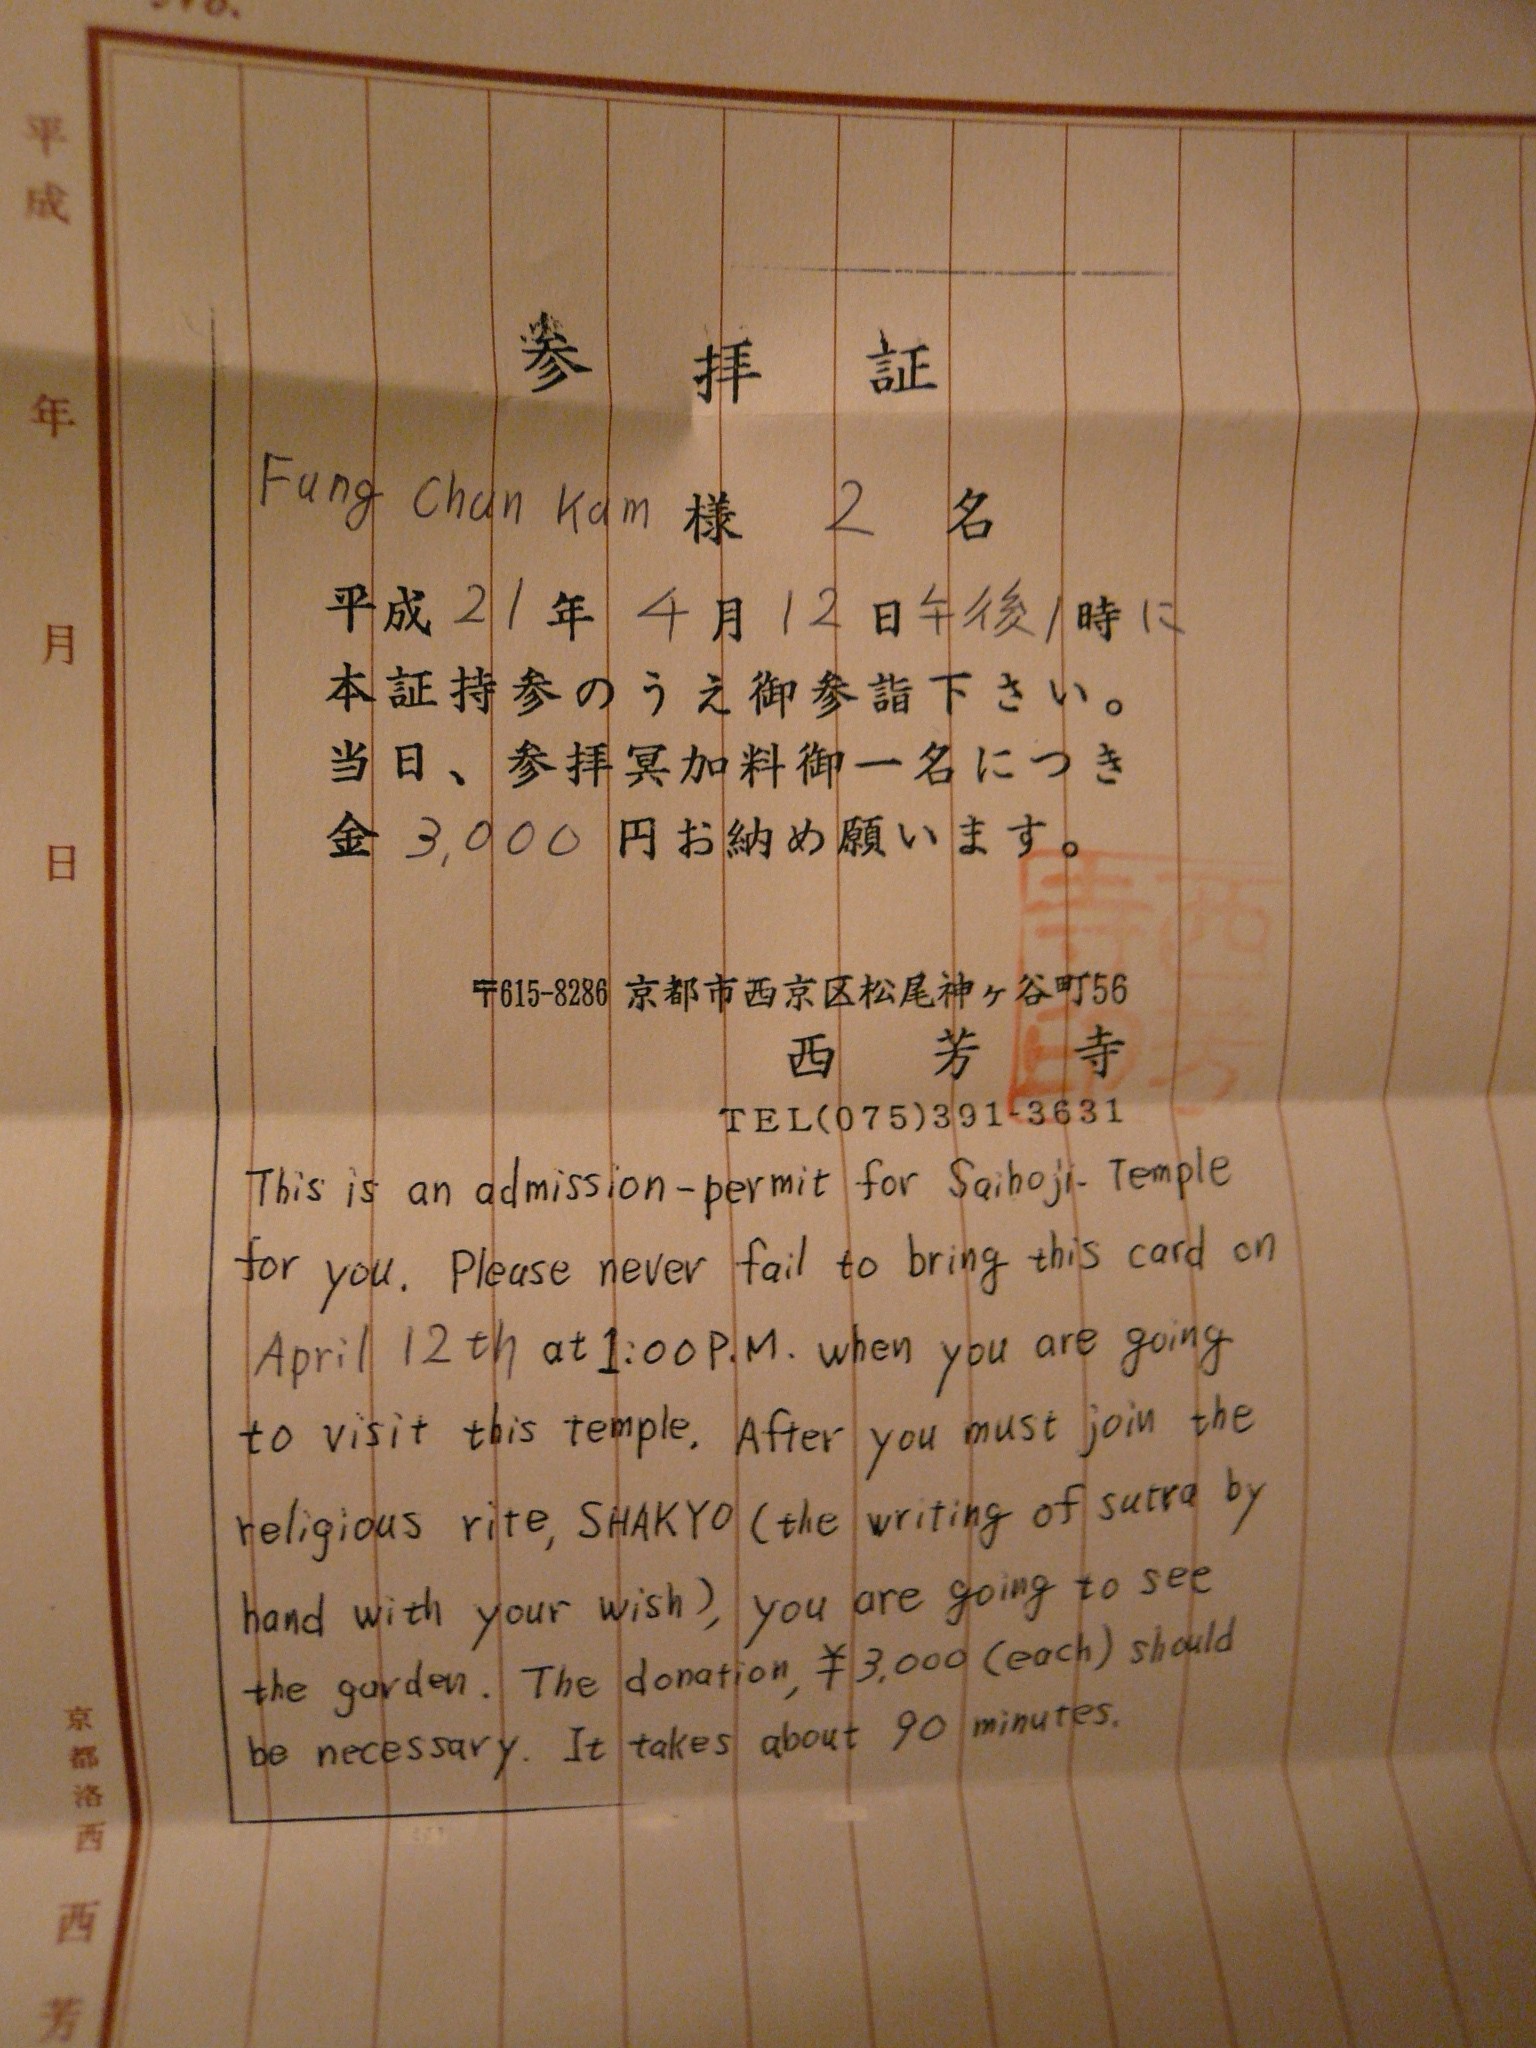 No.
平成 年 月 日
京都洛西 西芳
参拝証
Fung Chan Kam 様 2 名
平成 21 年 4 月 12 日 午後 1 時 に
本証持参のうえ御参詣下さい。
当日、参拝冥加料御一名につき
金 3,000 円お納め願います。
〒615-8286 京都市西京区松尾神ヶ谷町56
西芳寺
西芳寺印
TEL(075)391-3631
This is an admission-permit for Saihoji-Temple
for you. Please never fail to bring this card on
April 12th at 1:00 P.M. when you are going
to visit this temple. After you must join the
religious rite, SHAKYO (the writing of sutra by
hand with your wish), you are going to see
the garden. The donation, ¥3,000 (each) should
be necessary. It takes about 90 minutes.